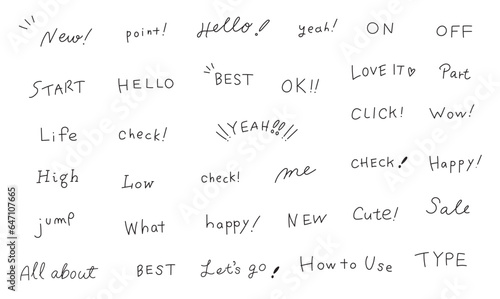 New! point! Hello! yeah! ON OFF
START HELLO BEST OK!! LOVE IT♡ Part
Life check! YEAH!! CLICK! Wow!
High Low check! me CHECK! Happy!
jump What happy! NEW Cute! Sale
All about BEST Let's go! How to Use TYPE
Adobe Stock | #647107665